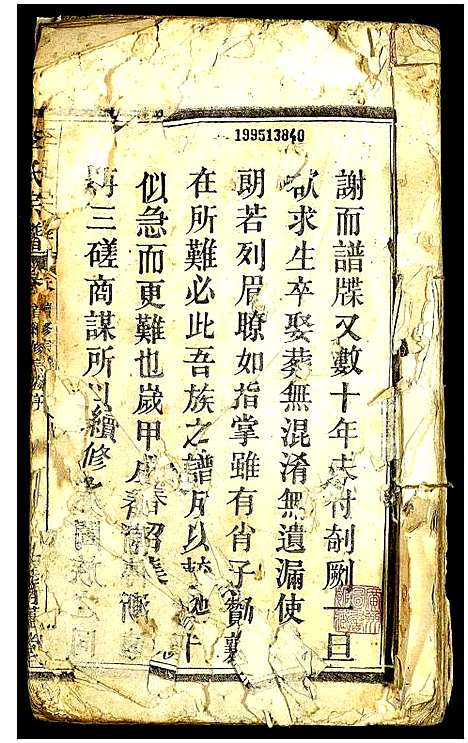 199513840
謝而譜牒又數十年未付剞劂一旦
欲求生卒娶葬無混淆無遺漏使
朗若列眉瞭如指掌雖有省子贊襄
在所難必此吾族之譜所以
似急而更難也歲甲戌春
再三磋商謀所以續修
氏宗譜